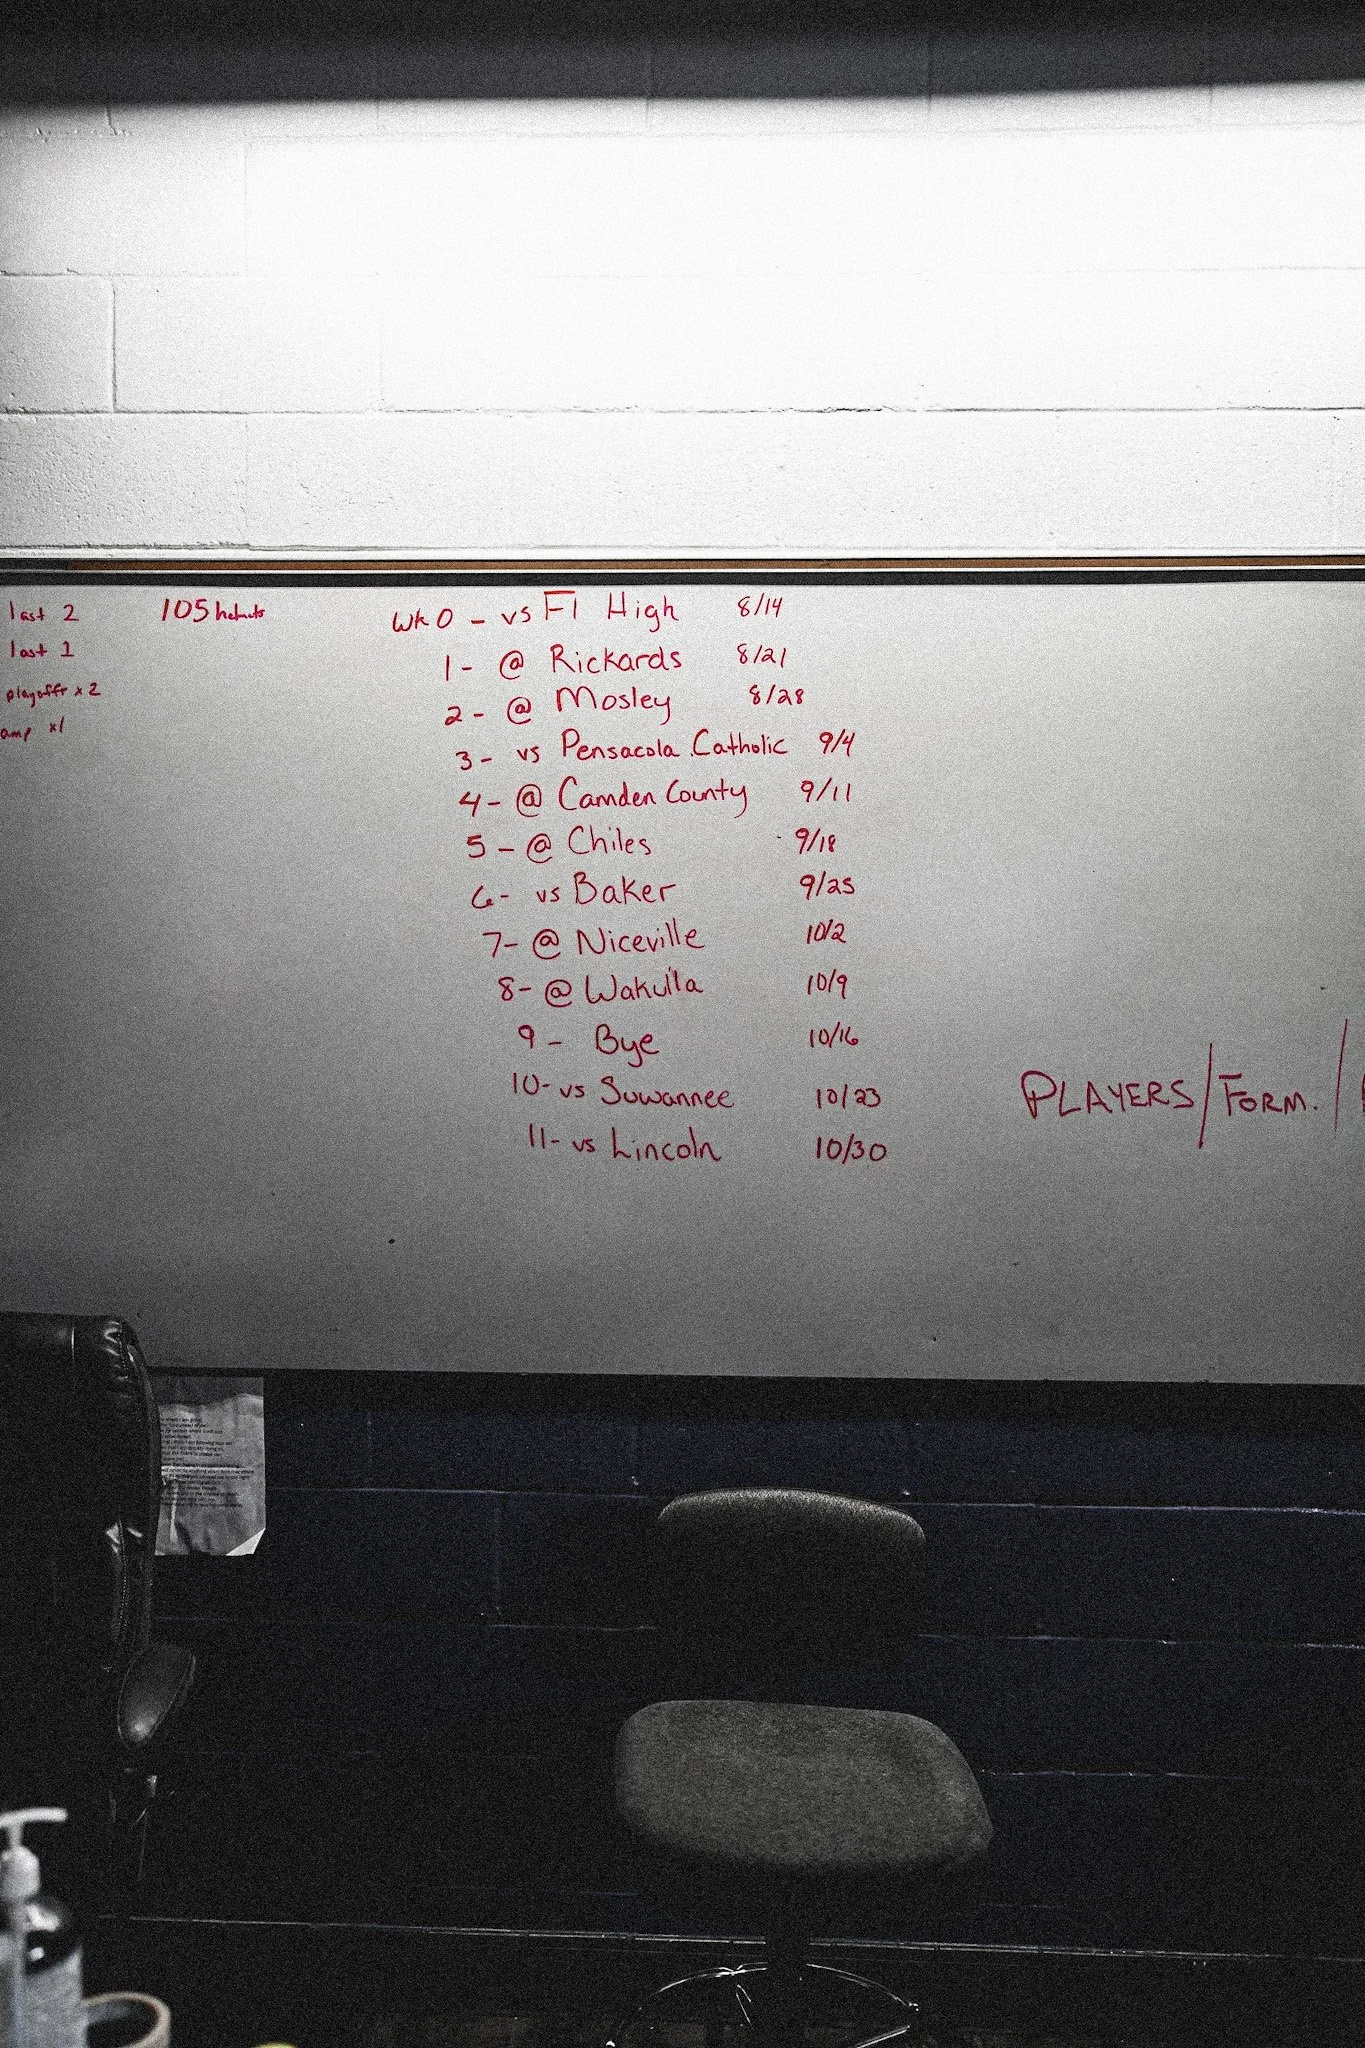 last 2
last 1
playoffs x 2
amp x1
105 helmets
Wk 0 - vs Fl High 8/14
1- @ Rickards 8/21
2- @ Mosley 8/28
3- vs Pensacola Catholic 9/4
4- @ Camden County 9/11
5- @ Chiles 9/18
6- vs Baker 9/25
7- @ Niceville 10/2
8- @ Wakulla 10/9
9- Bye 10/16
10- vs Suwannee 10/23
11- vs Lincoln 10/30
PLAYERS/FORM./